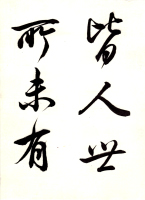 皆人世
所未有